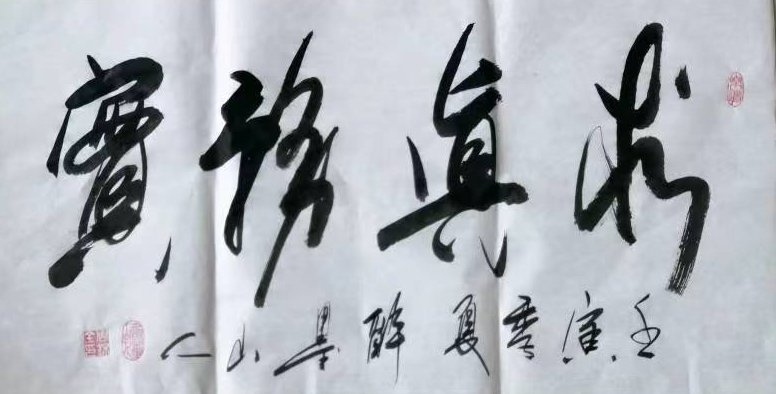 求真務實
壬寅季夏醉墨山人